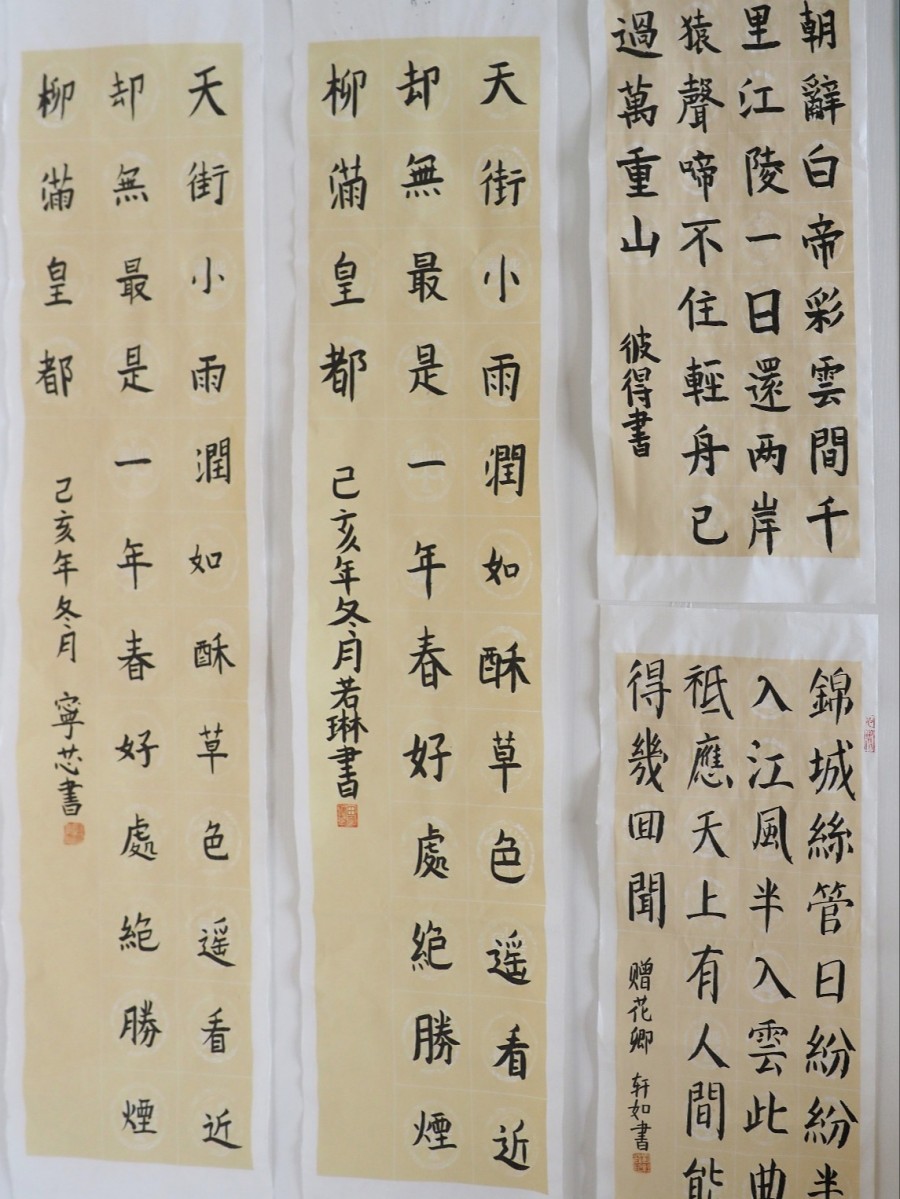 朝辭白帝彩雲間千
里江陵一日還两岸
猿聲啼不住輕舟已
過萬重山 彼得書
錦城絲管日紛紛半
入江風半入雲此曲
祗應天上有人間能
得幾回聞 赠花卿 轩如書
天街小雨潤如酥草色遥看近
却無最是一年春好處絶勝煙
柳滿皇都 己亥年冬月若琳書
天街小雨潤如酥草色遥看近
却無最是一年春好處絶勝煙
柳滿皇都 己亥年冬月 寧芯書